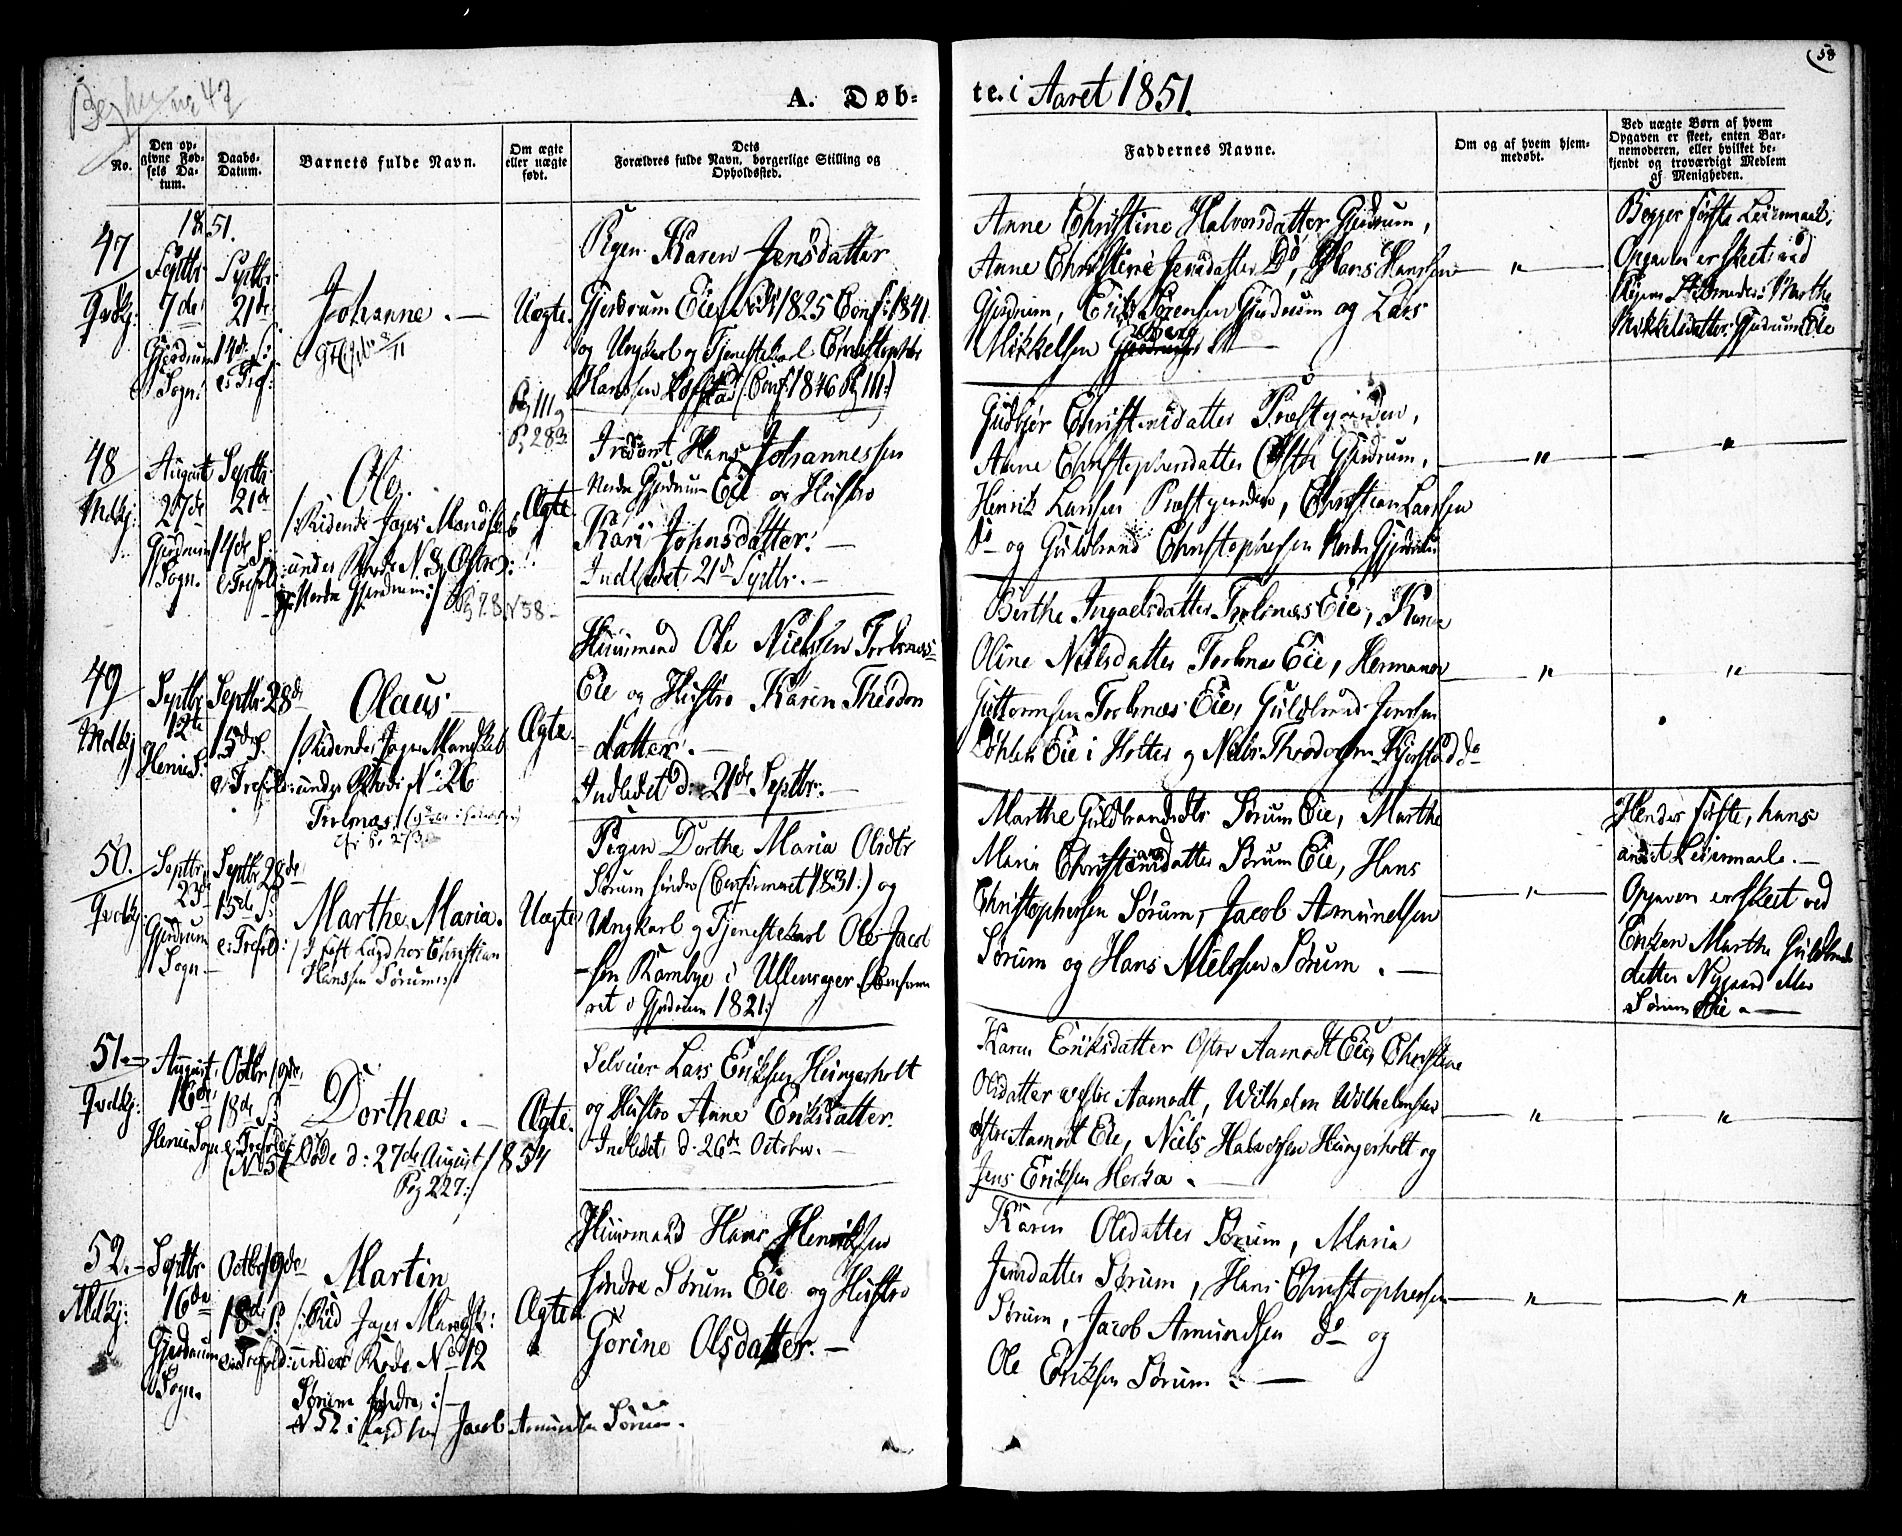 58
A. Døb-
te. i Aaret 1851.
No.
Den op-
givne Fød-
sels Da-
tum.
Daabs-
Datum.
Barnets fulde Navn.
Om ægte
eller uægte
født.
Dets
Forældres fulde Navn, borgerlige Stilling og
Opholdssted.
Faddernes Navne.
Om og af hvem hjem-
medøbt.
Ved uægte Børn af hvem
Opgaven er skeet, enten Bar-
nemoderen, eller hvilket be-
kjendt og troværdigt Medlem
af Menigheden.
47
Qvdkj:
1851.
Septbr
7de
Gjerdrum
Sogn.
Septbr
21de
14de S:
e: Tref:
Johanne. —
Uægte.
Pigen Karen Jensdatter
Gjerdrum Eie, født 1825 Conf: 1841
og Ungkarl og Tjenestekarl Christopher
Hanssen (Conf: 1846 Pag 111:)
Anne Christine Halvorsdatter Gjerdrum,
Anne Christine Jensdatter Do, Hans Hanssen
Gjerdrum, Erik Sørensen Gjerdrum og Lars
Mikkelsen
"
Begges første Leiermaal.
Opgaven er skeet ved
Pigens Marthe
Mikkelsdatter Gjerdrum Eie
48
Mdkj:
August
27de
Gjerdrum
Sogn.
Septbr
21de
14de S:
e: Trefold:
Ole.
/: Ridende Jæger Mandskab
under Rode N. 8 Østre
Nordre Gjerdrum :/
Pag 111
P. 283
Ægte
Hans Johannessen
Nordre Gjerdrum Eie og Hustro
Kari Johnsdatter. —
Indledet 21de Septbr. —
Christensdatter Præstgaarden,
Anne Christophersdatter Østre Gjerdrum,
Henrik Larssen Præstgaarden, Christian Larssen
do og Guldbrand Christophersen Nordre Gjerdrum
"
"
49
Mdkj
Septbr
12te
Henie S:
Septbr 28de
15de S.
e: Trefold:
Olaus
/: Ridende Jæger Mandskab
under Rode No 26
Ægte
Huusmand Ole Nielsen
Eie og Hustro Karen
datter. —
Indledet d: 21de Septbr. —
Berthe Eie, Karen
Oline Nielsdatter Eie, Hermann
Guttormsen Eie, Guldbrand Jensen
Eie i Holter og Niels
"
"
50.
Qvdkj:
Septbr
23de
Gjerdrum
Sogn
Septbr 28de
15de S:
e: Trefold:
Marthe Maria.
/: I søft Lægd hos Christian
Hanssen Sørum :/
Uægte
Pigen Dorthe Maria Olsdtr
Sørum søndre (Confirmeret 1831:) og
Ungkarl og Tjenestekarl Ole Jacob
sen i Ullensager (Confirme
ret i Gjerdrum 1821:)
Marthe Guldbrandsdtr Sørum Eie, Marthe
Maria Christiansdatter Sørum Eie, Hans
Christophersen Sørum, Jacob Amundsen
Sørum og Hans Nielssen Sørum. —
"
Hendes første, hans
andet Leiermaal. —
Opgaven er skeet ved
Enken Marthe Guldbrands
datter Nygaard eller
Sørum Eie. —
51.
Qvdkj:
August
16de
Henie Sogn
Octbr 19de
18de S:
e: Trefold:
(N. 57
Dorthea. —
Døde d: 27de August 1854
Pag 227:/
Ægte.
Selveier Lars Eriksen Hungerholt
og Hustro Anne Eriksdatter.
Indledet d: 26de October. —
Karen Eriksdatter Østre Aamodt Eie, Christine
Olsdatter vestre Aamodt, Wilhelm Wilhelmsen
østre Aamodt Eie, Niels Halvorsen Hungerholt og
Jens Eriksen Herka. —
"
"
52.
Mdkj:
Septbr
16de
Gjerdrum
Sogn.
Octbr 19de
18de S:
e: Trefold:
Martin
/: Rid Jæger Mandsk:
under Rode No 12
Sørum søndre :/
N 52 i Lægd hos Jacob Amundsen Sørum.
Ægte
Huusmand Hans Henriksen
søndre Sørum Eie og Hustro
Gørine Olsdatter. —
Karen Olsdatter Sørum, Maria
Jensdatter Sørum, Hans Christophersen
Sørum, Jacob Amundsen do og
Ole Eriksen Sørum. —
"
"